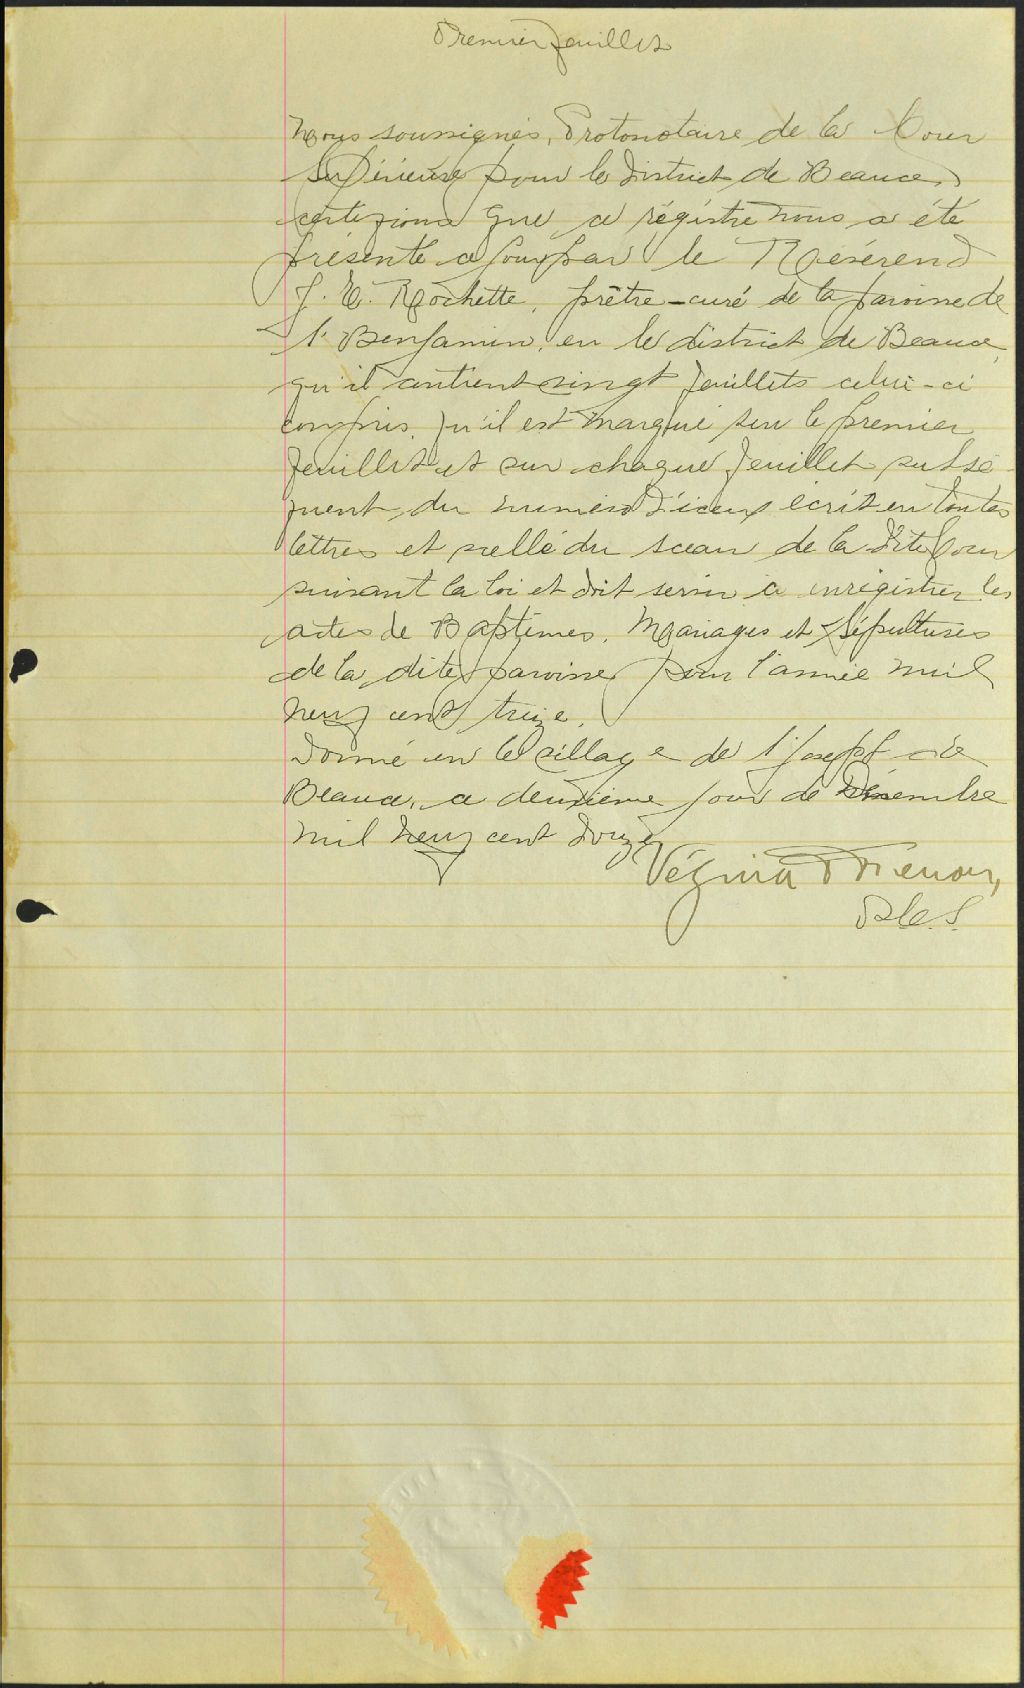 Premier feuillet
Nous soussignés, Protonotaire de la Cour
Supérieure pour le district de Beauce,
certifions que ce régistre nous a été
présenté ce jour par le Révérend
J. E. Rochette, prêtre-curé de la paroisse de
St Benjamin, en le district de Beauce,
qu'il contient vingt feuillets celui-ci
compris, qu'il est marqué sur le premier
feuillet et sur chaque feuillet subsé-
quent, du numéro d'iceux écrit en toutes
lettres et scellé du sceau de la dite Cour
suivant la loi et doit servir à enrégistrer les
actes de Baptêmes, Mariages et Sépultures
de la dite paroisse pour l'année mil
neuf cent treize.
Donné en le village de St Joseph de
Beauce, ce deuxième jour de Décembre
mil neuf cent douze.
Vézina
P.C.S.